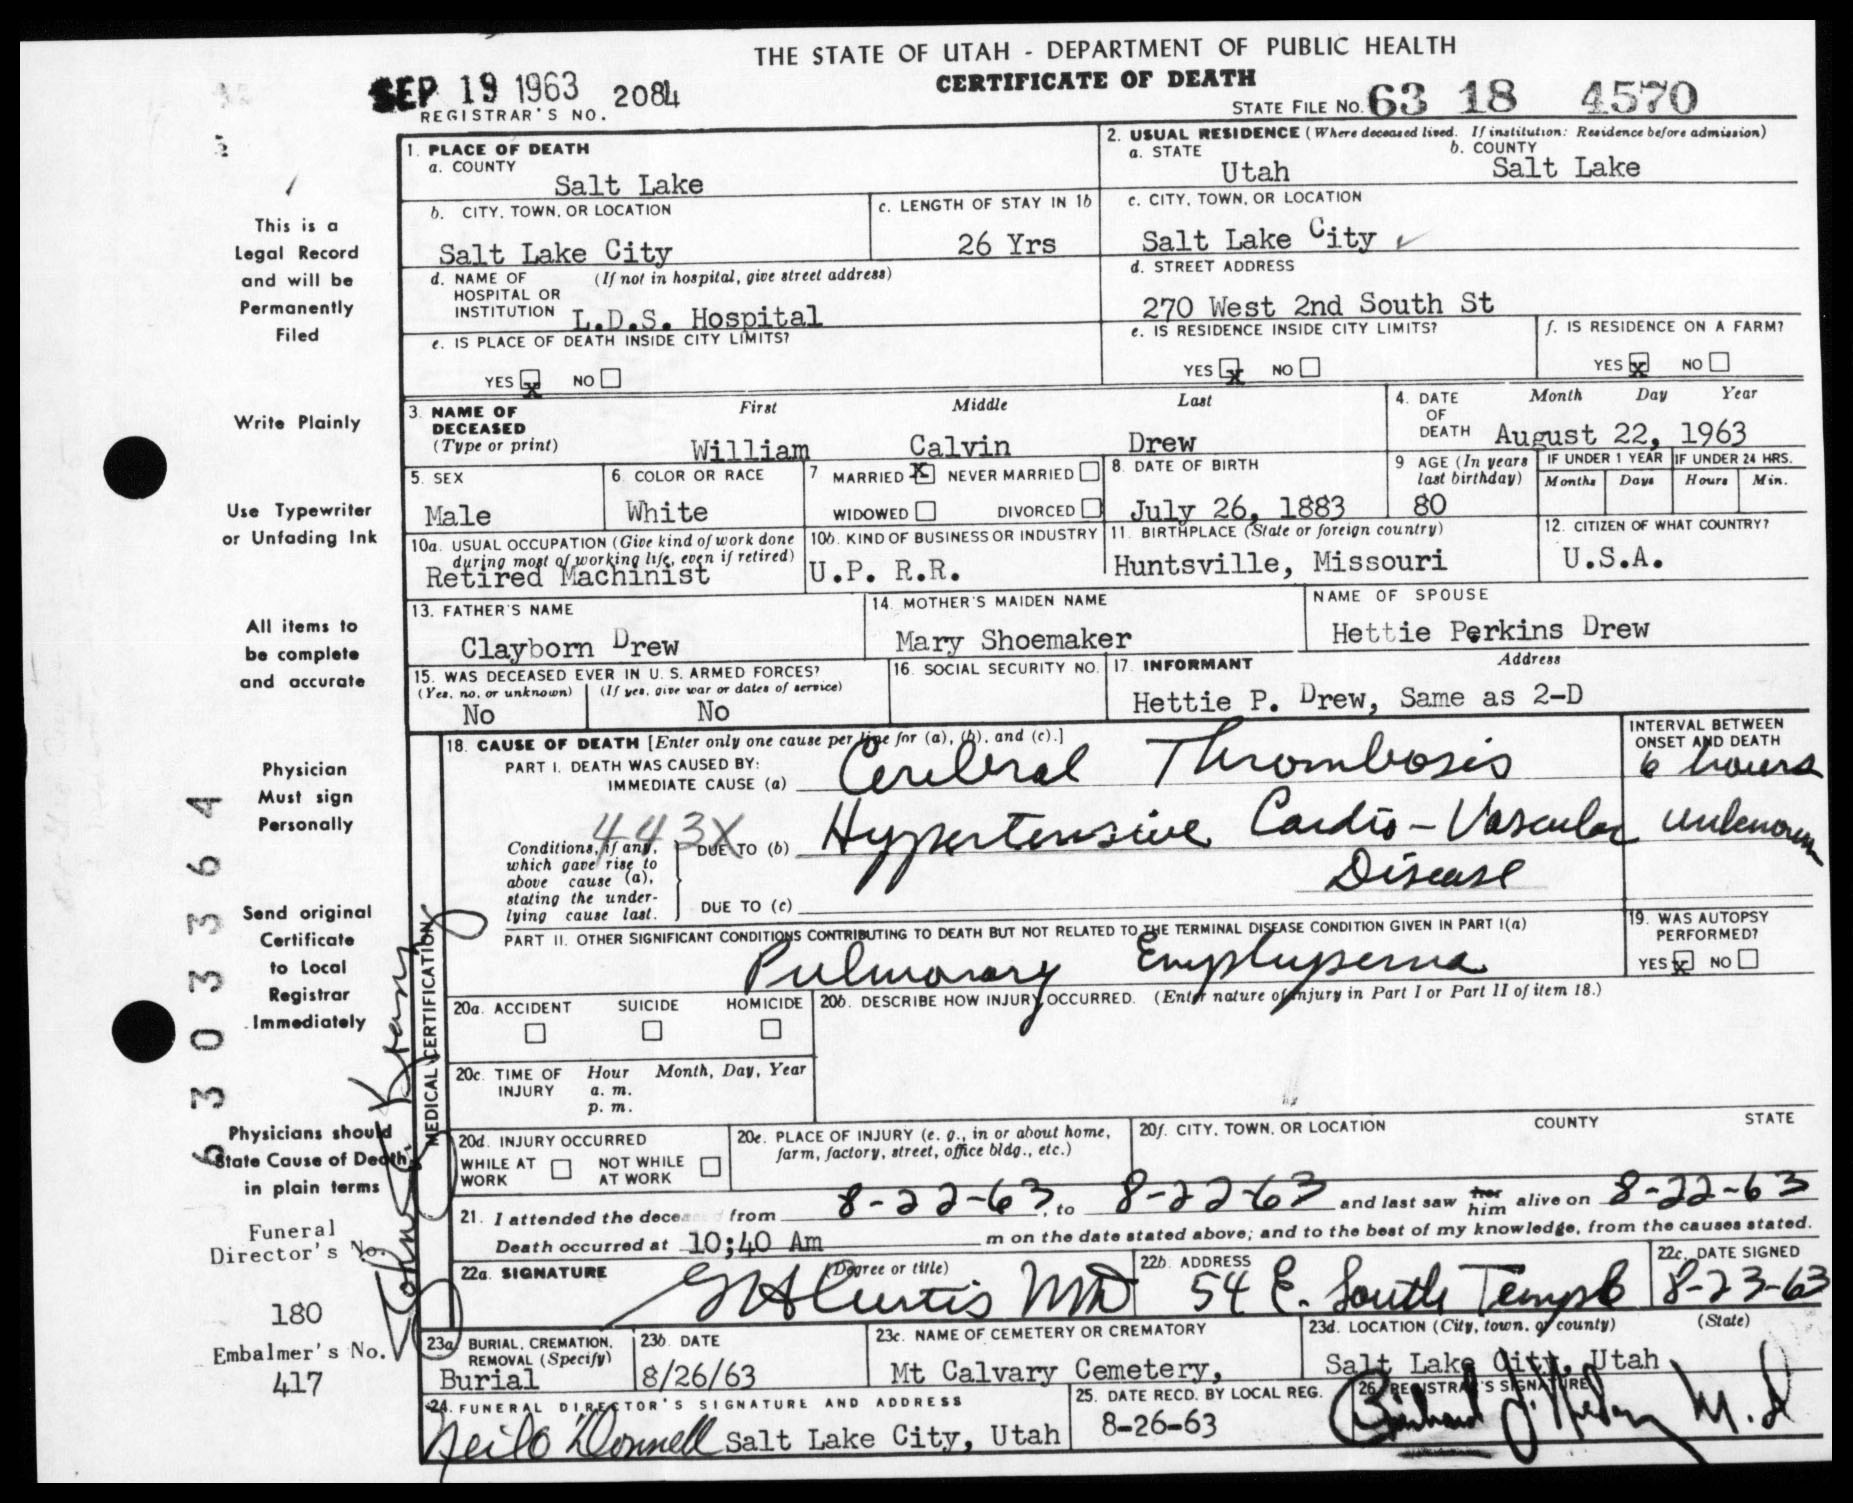 THE STATE OF UTAH - DEPARTMENT OF PUBLIC HEALTH
CERTIFICATE OF DEATH
SEP 19 1963 2084
REGISTRAR'S NO.
STATE FILE NO. 63 18 4570
1. PLACE OF DEATH
a. COUNTY
Salt Lake
2. USUAL RESIDENCE (Where deceased lived. If institution: Residence before admission)
a. STATE
Utah
b. COUNTY
Salt Lake
b. CITY, TOWN, OR LOCATION
Salt Lake City
c. LENGTH OF STAY IN 1b
26 Yrs
c. CITY, TOWN, OR LOCATION
Salt Lake City
d. NAME OF HOSPITAL OR INSTITUTION (If not in hospital, give street address)
L.D.S. Hospital
d. STREET ADDRESS
270 West 2nd South St
e. IS PLACE OF DEATH INSIDE CITY LIMITS?
YES X NO
e. IS RESIDENCE INSIDE CITY LIMITS?
YES X NO
f. IS RESIDENCE ON A FARM?
YES X NO
3. NAME OF DECEASED (Type or print)
First Middle Last
William Calvin Drew
4. DATE OF DEATH
Month Day Year
August 22, 1963
5. SEX
Male
6. COLOR OR RACE
White
7 MARRIED X NEVER MARRIED
WIDOWED DIVORCED
8. DATE OF BIRTH
July 26, 1883
9 AGE (In years last birthday)
80
IF UNDER 1 YEAR
Months Days
IF UNDER 24 HRS.
Hours Min.
10a. USUAL OCCUPATION (Give kind of work done during most of working life, even if retired)
Retired Machinist
10b. KIND OF BUSINESS OR INDUSTRY
U.P. R.R.
11. BIRTHPLACE (State or foreign country)
Huntsville, Missouri
12. CITIZEN OF WHAT COUNTRY?
U.S.A.
13. FATHER'S NAME
Clayborn Drew
14. MOTHER'S MAIDEN NAME
Mary Shoemaker
NAME OF SPOUSE
Hettie Perkins Drew
15. WAS DECEASED EVER IN U.S. ARMED FORCES?
(Yes, no, or unknown) (If yes, give war or dates of service)
No No
16. SOCIAL SECURITY NO.
17. INFORMANT Address
Hettie P. Drew, Same as 2-D
18. CAUSE OF DEATH [Enter only one cause per line for (a), (b), and (c).]
PART I. DEATH WAS CAUSED BY:
IMMEDIATE CAUSE (a) Cerebral Thrombosis
INTERVAL BETWEEN ONSET AND DEATH
6 hours
443X
Conditions, if any, which gave rise to above cause (a), stating the underlying cause last.
DUE TO (b) Hypertensive Cardio-Vascular Disease
unknown
DUE TO (c)
PART II. OTHER SIGNIFICANT CONDITIONS CONTRIBUTING TO DEATH BUT NOT RELATED TO THE TERMINAL DISEASE CONDITION GIVEN IN PART I(a)
Pulmonary Emphysema
19. WAS AUTOPSY PERFORMED?
YES X NO
20a. ACCIDENT SUICIDE HOMICIDE
20b. DESCRIBE HOW INJURY OCCURRED. (Enter nature of injury in Part I or Part II of item 18.)
20c. TIME OF INJURY
Hour Month, Day, Year
a. m.
p. m.
20d. INJURY OCCURRED
WHILE AT WORK NOT WHILE AT WORK
20e. PLACE OF INJURY (e. g., in or about home, farm, factory, street, office bldg., etc.)
20f. CITY, TOWN, OR LOCATION COUNTY STATE
21. I attended the deceased from 8-22-63, to 8-22-63 and last saw her him alive on 8-22-63
Death occurred at 10;40 Am m on the date stated above; and to the best of my knowledge, from the causes stated.
22a. SIGNATURE (Degree or title)
G H Curtis MD
22b. ADDRESS
54 E. South Temple
22c. DATE SIGNED
8-23-63
23a. BURIAL, CREMATION, REMOVAL (Specify)
Burial
23b. DATE
8/26/63
23c. NAME OF CEMETERY OR CREMATORY
Mt Calvary Cemetery,
23d. LOCATION (City, town, or county) (State)
Salt Lake City, Utah
24. FUNERAL DIRECTOR'S SIGNATURE AND ADDRESS
Neil O'Donnell Salt Lake City, Utah
25. DATE RECD. BY LOCAL REG.
8-26-63
26. REGISTRAR'S SIGNATURE
M.D
MEDICAL CERTIFICATION
This is a
Legal Record
and will be
Permanently
Filed
Write Plainly
Use Typewriter
or Unfading Ink
All items to
be complete
and accurate
Physician
Must sign
Personally
Send original
Certificate
to Local
Registrar
Immediately
Physicians should
State Cause of Death
in plain terms
Funeral
Director's No.
180
Embalmer's No.
417
6303364
John